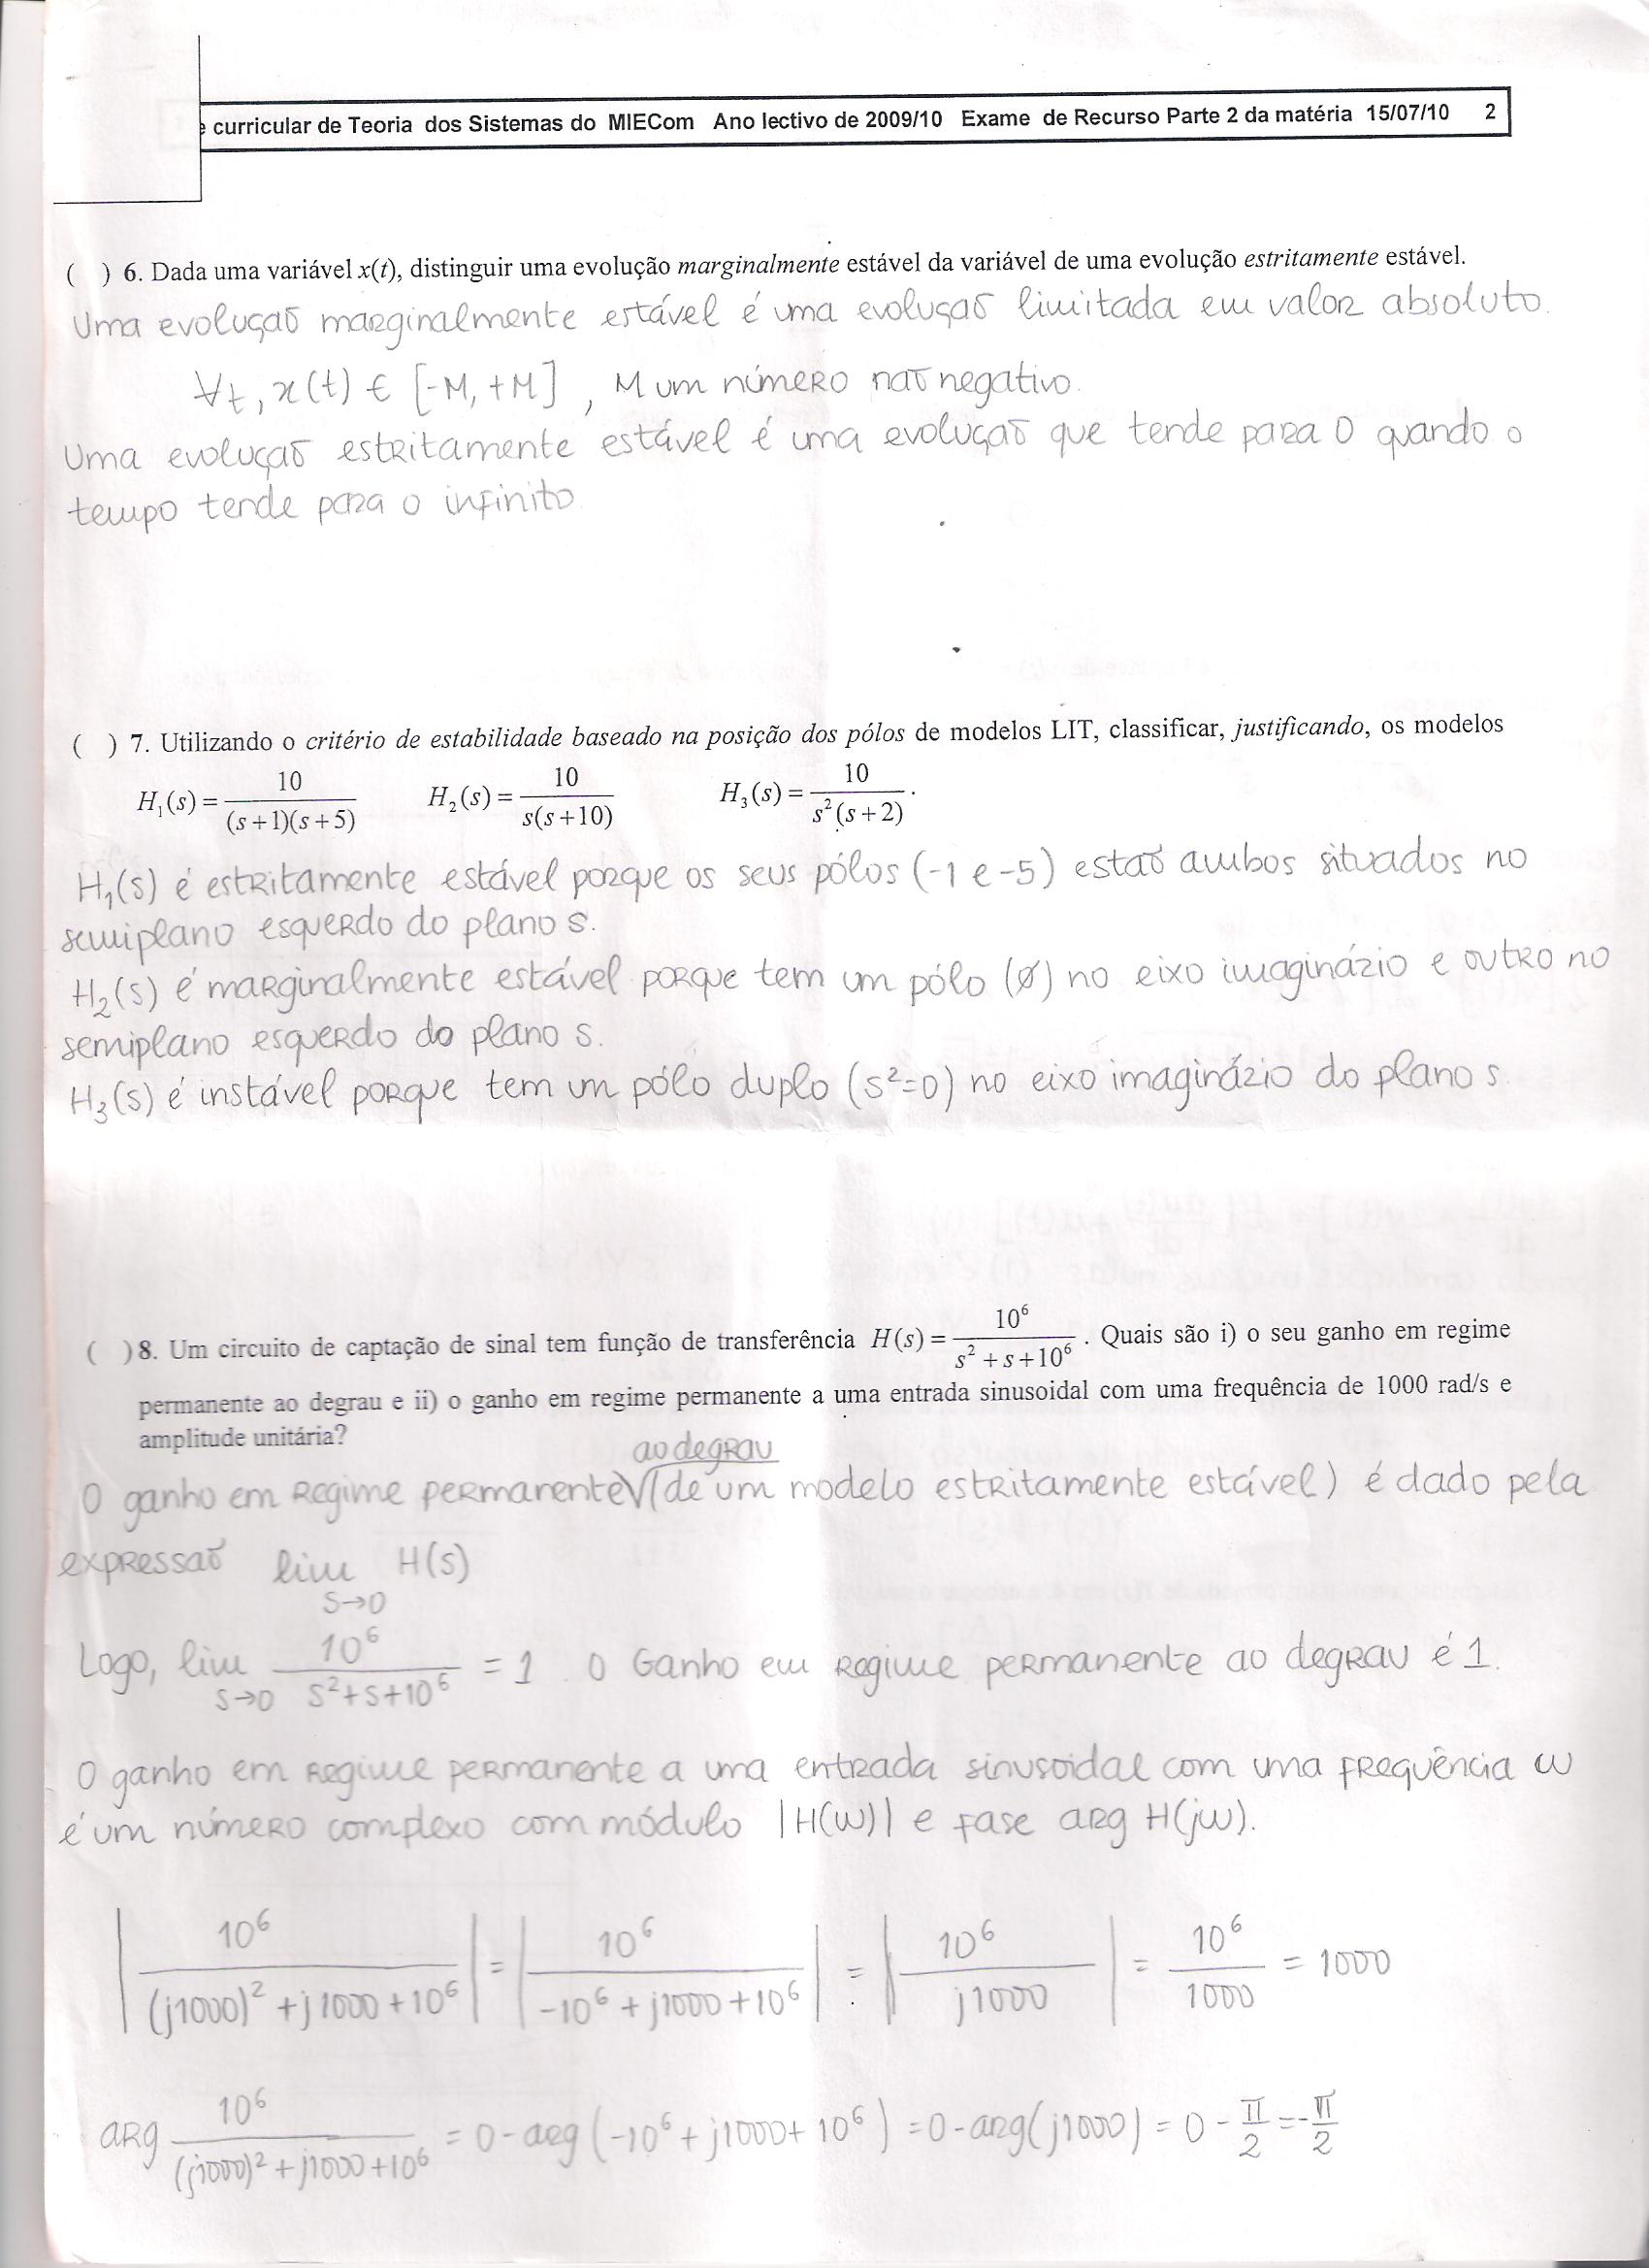 curricular de Teoria dos Sistemas do MIECom Ano lectivo de 2009/10 Exame de Recurso Parte 2 da matéria 15/07/10 2
( ) 6. Dada uma variável x(t), distinguir uma evolução marginalmente estável da variável de uma evolução estritamente estável.
Uma evolução marginalmente estável é uma evolução limitada em valor absoluto.
∀t, x(t) ∈ [-M, +M], M um número não negativo.
Uma evolução estritamente estável é uma evolução que tende para 0 quando o
tempo tende para o infinito
( ) 7. Utilizando o critério de estabilidade baseado na posição dos pólos de modelos LIT, classificar, justificando, os modelos
H₁(s) = 10/((s+1)(s+5)) H₂(s) = 10/(s(s+10)) H₃(s) = 10/(s²(s+2)).
H₁(s) é estritamente estável porque os seus pólos (-1 e -5) estão ambos situados no
semiplano esquerdo do plano s.
H₂(s) é marginalmente estável porque tem um pólo (∅) no eixo imaginário e outro no
semiplano esquerdo do plano s.
H₃(s) é instável porque tem um pólo duplo (s²=0) no eixo imaginário do plano s
( )8. Um circuito de captação de sinal tem função de transferência H(s) = 10⁶/(s²+s+10⁶). Quais são i) o seu ganho em regime
permanente ao degrau e ii) o ganho em regime permanente a uma entrada sinusoidal com uma frequência de 1000 rad/s e
amplitude unitária?
ao degrau
O ganho em regime permanente √(de um modelo estritamente estável) é dado pela
expressão lim H(s)
s→0
Logo, lim s→0 10⁶/(s²+s+10⁶) = 1. O Ganho em Regime permanente ao degrau é 1.
O ganho em regime permanente a uma entrada sinusoidal com uma frequência ω
é um número complexo com módulo |H(ω)| e fase arg H(jω).
|10⁶/((j1000)²+j1000+10⁶)| = |10⁶/(-10⁶+j1000+10⁶)| = |10⁶/(j1000)| = 10⁶/1000 = 1000
arg 10⁶/((j1000)²+j1000+10⁶) = 0-arg(-10⁶+j1000+10⁶) = 0-arg(j1000) = 0 - π/2 = -π/2